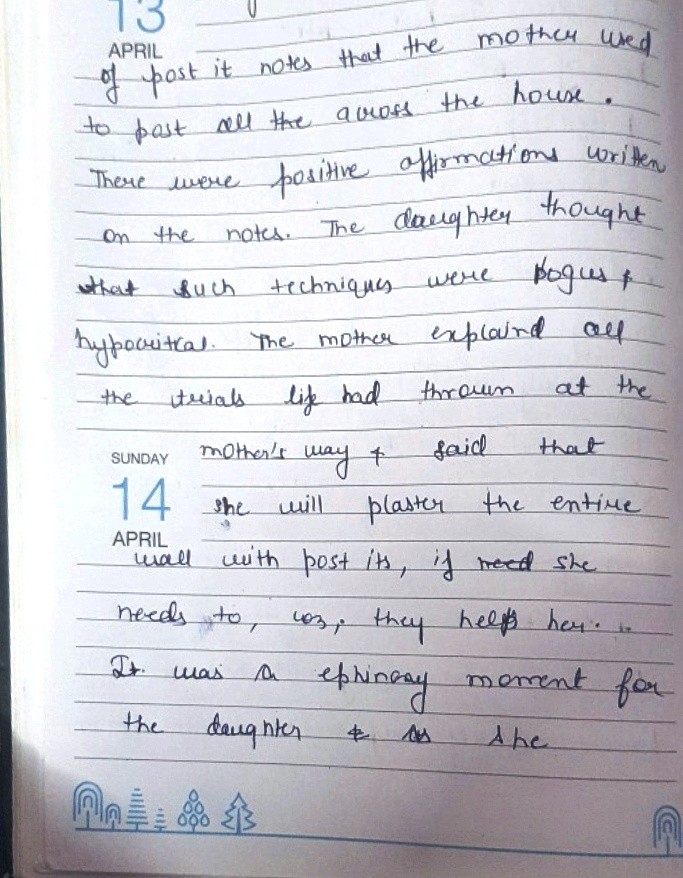 13
APRIL
of post it notes that the mother used
to past all the across the house.
There were positive affirmations written
on the notes. The daughter thought
that such techniques were bogus &
hypocritcal. The mother explaind all
the trials life had thrown at the
SUNDAY
mother's way & said that
14
she will plaster the entire
APRIL
wall with post its, if need she
needs to, coz, they help her. ..
It was a ephinoay moment for
the daughter & as she